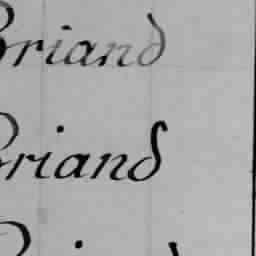 Briand
Briand